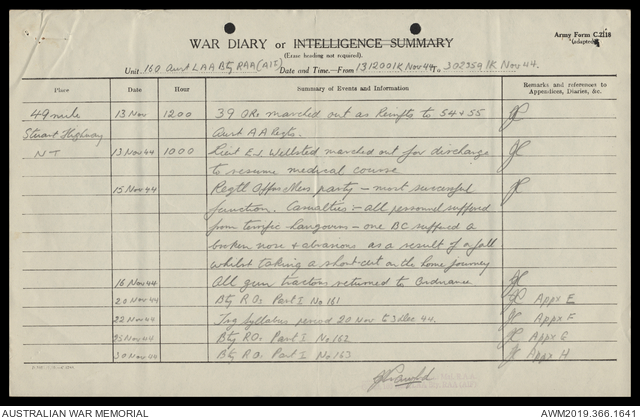 Army Form C.2118
(adapted)
WAR DIARY or INTELLIGENCE SUMMARY
(Erase heading not required).
Unit 160 Aust LAA Bty RAA (AIF) Date and Time—From 131200K Nov 44 To 302359K Nov 44.
Place Date Hour Summary of Events and Information Remarks and references to Appendices, Diaries, &c.
49 mile 13 Nov 1200 39 ORs marched out as Reinfts to 54 & 55
Stuart Highway Aust AA Regts.
NT 13 Nov 44 1000 Lieut E.J. Wellsted marched out for discharge
to resume medical course
15 Nov 44 Regtl Offrs Mess party – most successful
function. Casualties :– all personnel suffered
from terrific hangovers – one BC suffered a
broken nose & abrasions as a result of a fall
whilst taking a short-cut on the home journey
16 Nov 44 All gun tractors returned to Ordnance.
20 Nov 44 Bty R.Os. Part I No 161 Appx E
22 Nov 44 Trg Syllabus period 20 Nov to 3 Dec 44. Appx F
25 Nov 44 Bty R.Os. Part I No 162 Appx G
30 Nov 44 Bty R.Os. Part I No 163 Appx H
AUSTRALIAN WAR MEMORIAL
AWM2019.366.1641